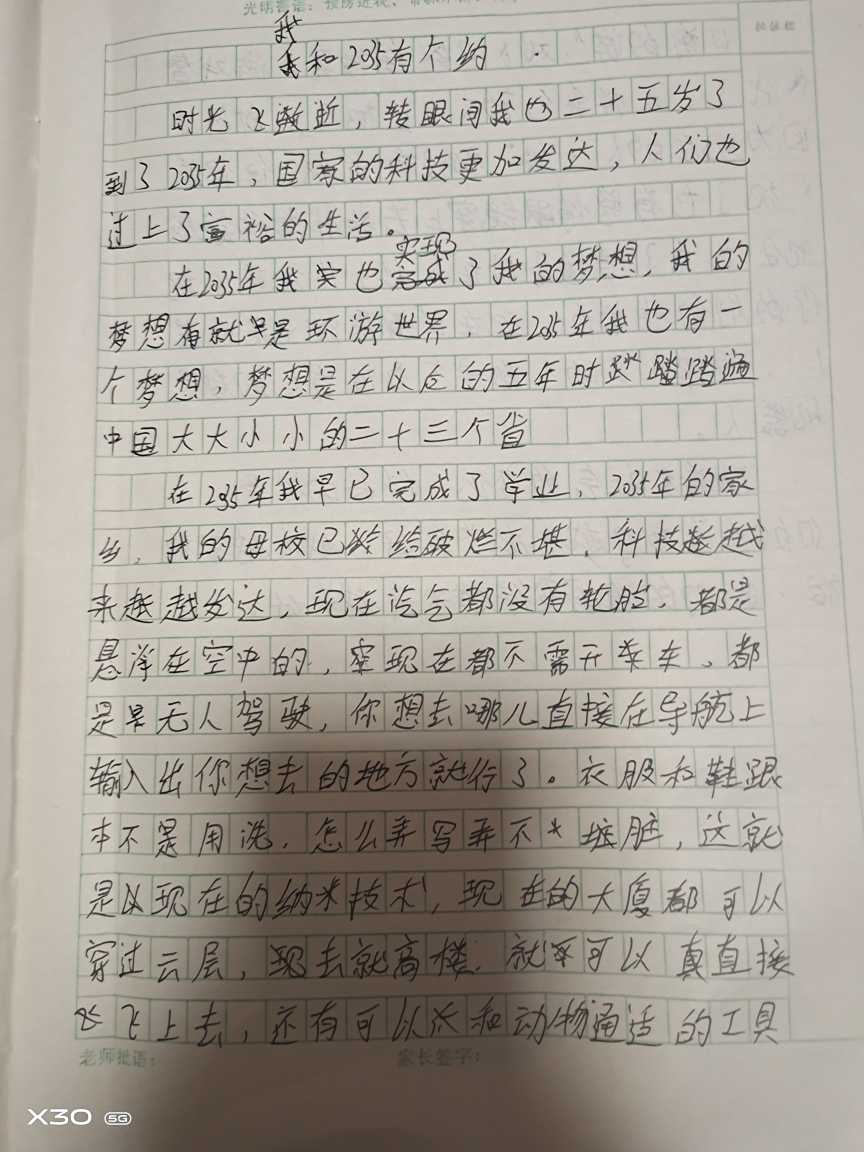 我
我和2035有个约
时光飞逝，转眼间我也二十五岁了
到了2035年，国家的科技更加发达，人们也
过上了富裕的生活。
实现
在2035年我实也完成了我的梦想，我的
梦想有就早是环游世界．在2035年我也有一
个梦想，梦想是在以后的五年时踏踏遍
中国大大小小的二十三个省
在2035年我早已完成了学业．2035年的家
乡．我的母校已经破烂不堪．科技越越
来越越发达，现在汽气都没有轮胎．都是
悬浮在空中的．现在都不需开车．都
是无人驾驶，你想去哪儿直接在导航上
输入出你想去的地方就行了。衣服和鞋跟
本不是用洗．怎么弄写弄不脏，这就
是以现在的纳米技术，现在的大厦都可以
穿过云层，现去就高楼．就可以真直接
飞飞上去，还有可以和动物通适的工具
老师批语：
家长签字：
X30 5G